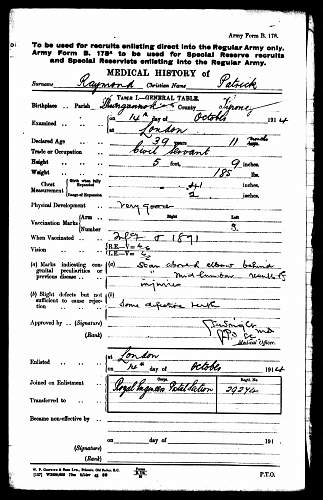 Army Form B. 178.
To be used for recruits enlisting direct into the Regular Army only.
Army Form B. 178A to be used for Special Reserve recruits
and Special Reservists enlisting into the Regular Army.
MEDICAL HISTORY of
Surname Raymond Christian Name Patrick
TABLE I.—GENERAL TABLE.
Birthplace Parish County
Examined on 14th day of October 1914
at London
Declared Age 39 years 11 months days.
Trade or Occupation Civil Servant
Height 5 feet, 9 inches.
Weight 185 lbs.
Chest Measurement Girth when fully Expanded 41 inches.
Range of Expansion 2 inches.
Physical Development Very good
Right Left
Vaccination Marks Arm
Number 3
When Vaccinated 1891
Vision R.E.—V=
L.E.—V=
(a) Marks indicating congenital peculiarities or previous disease (a) Scar above elbow behind
injuries
(b) Slight defects but not sufficient to cause rejection (b) Some defective teeth
Approved by (Signature)
(Rank)
Medical Officer.
Enlisted at London
on 14th day of October 1914
Corps. Regtl. No.
Joined on Enlistment Royal Engineers Postal Section 29274
Transferred to
Became non-effective by
on day of 191
(Signature)
(Rank)
P.T.O.